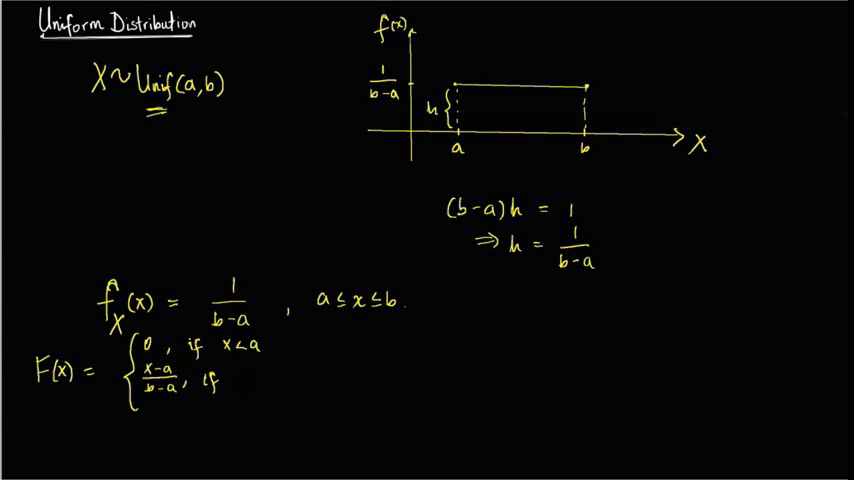 Uniform Distribution
X ~ Unif(a,b)
f(x)
1/(b-a)
h
a
b
X
(b-a)h = 1
⇒ h = 1/(b-a)
f_X(x) = 1/(b-a) , a ≤ x ≤ b.
F(x) = { 0 , if x < a
(x-a)/(b-a) , if